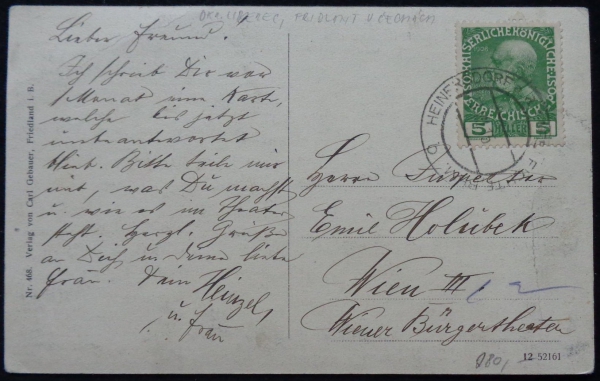 Lieber Freund.
Ich schrieb Dir vor
1 Monat eine Karte,
welche bis jetzt
unbeantwortet
blieb. Bitte teile mir
mit, was Du machst
u. wie es im Theater
steht. Herzl. Grüße
an Dich u. deine liebe
Frau. Dein Heinzel,
u. Frau
Nr. 468. Verlag von Carl Gebauer, Friedland i. B.
KAISERLICHE KÖNIGLICHE
POST
5 HELLER 5
HEINERSDORF
Herrn
Emil Holubek
Wien III
Wiener Bürgertheater
12 52161